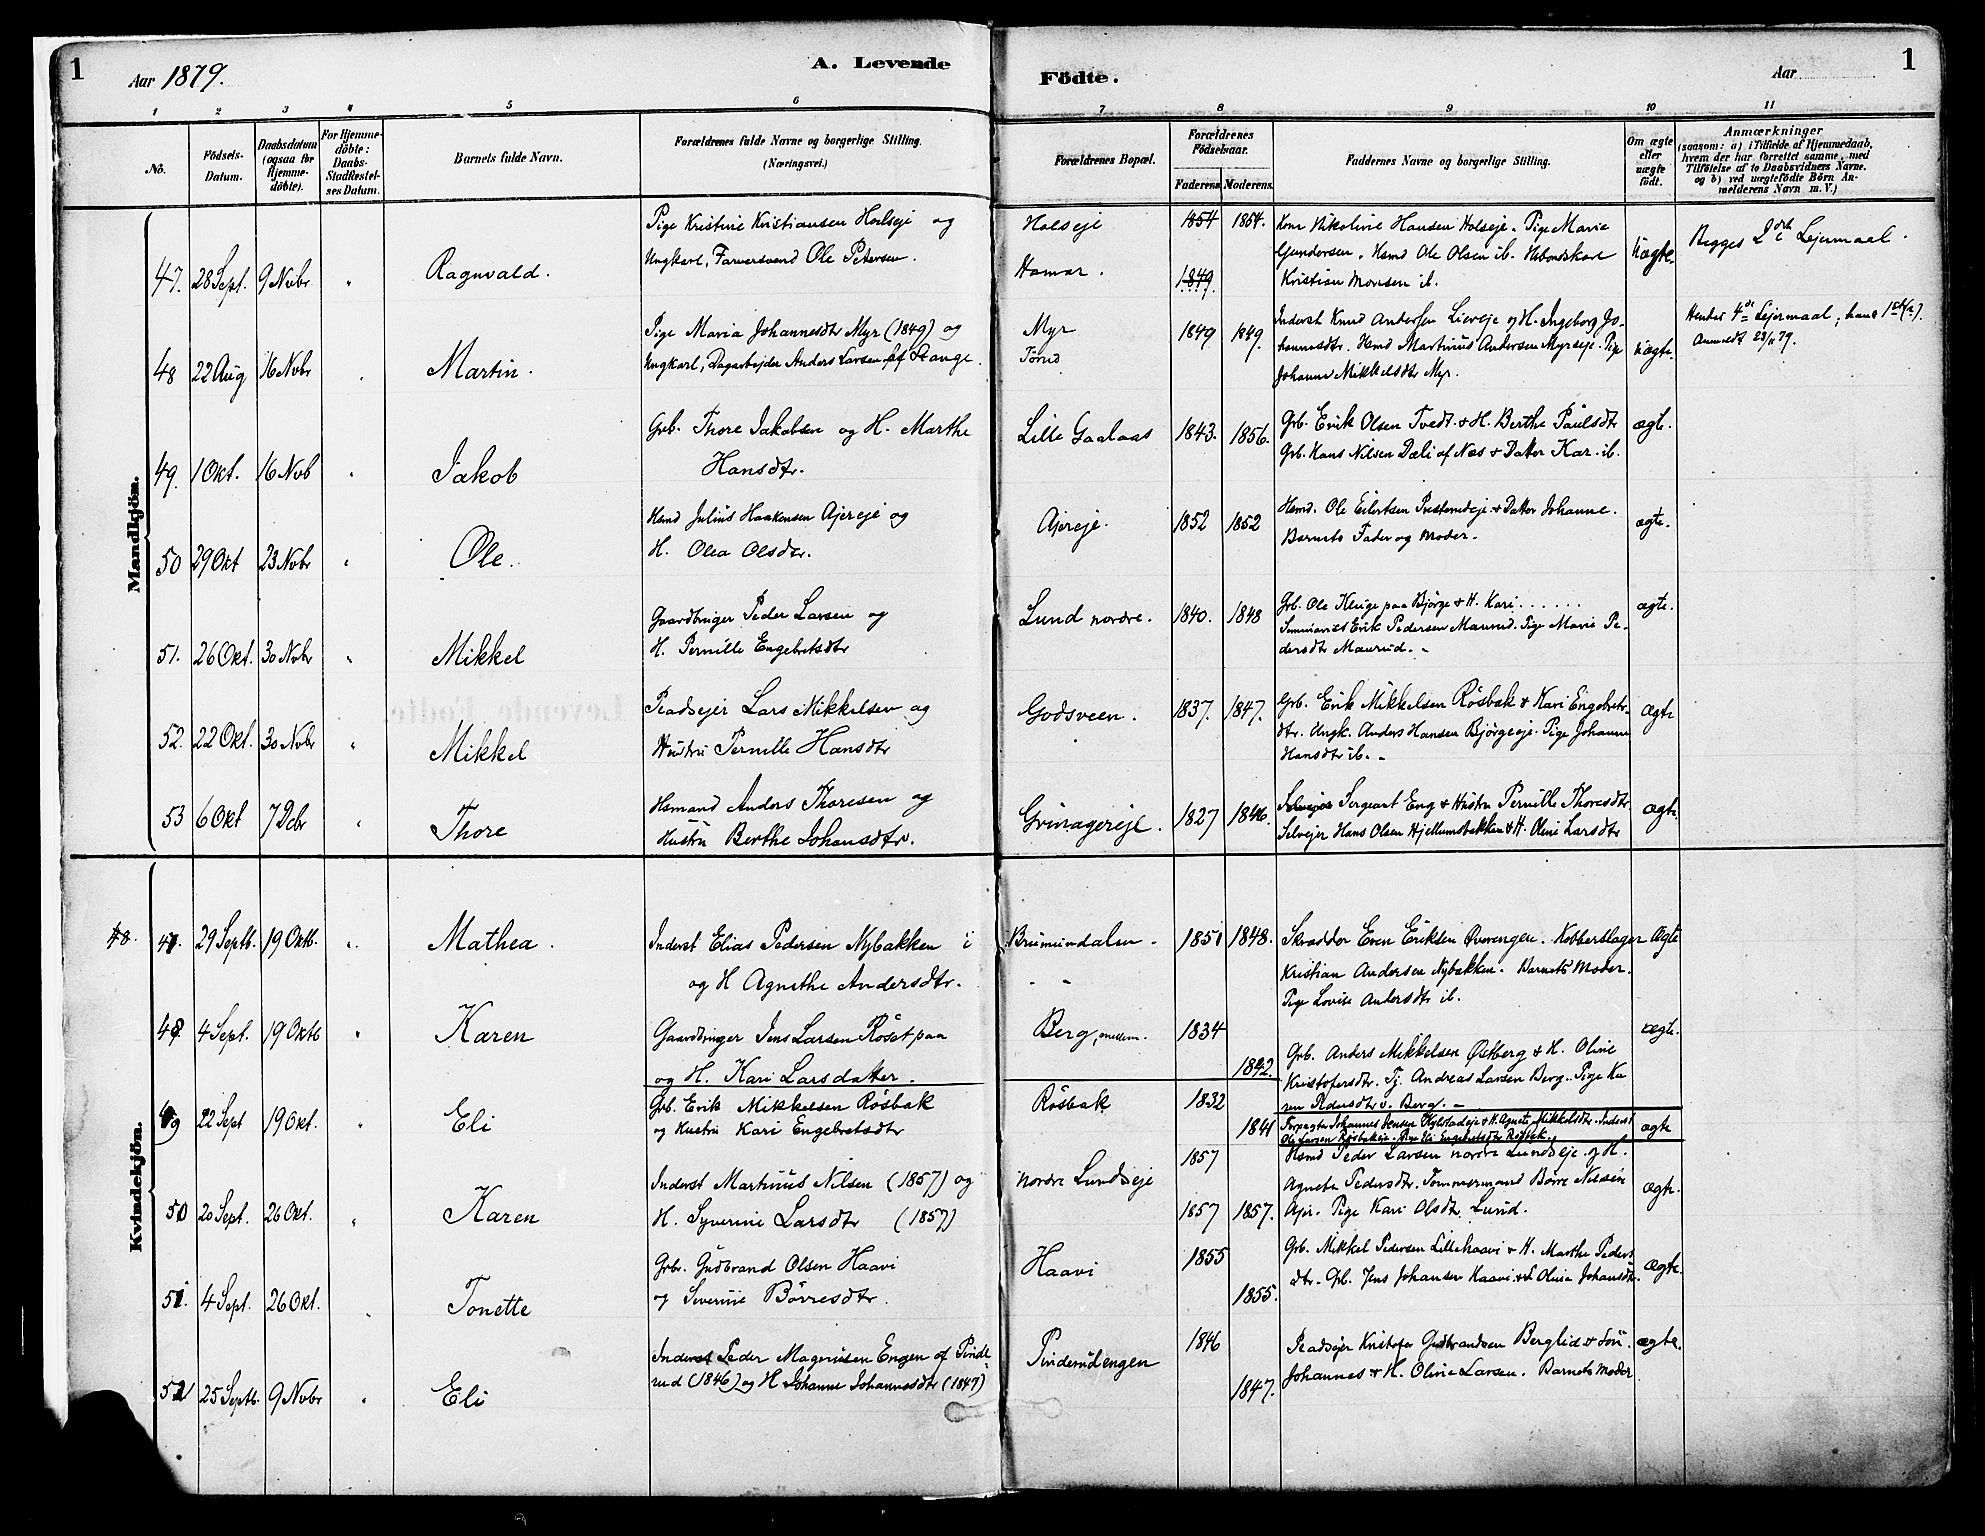 1
Aar 1879.
A. Levende
Födte.
Aar
1
1 2 3 4 5 6
7 8 9 10 11
No.
Födsels-
Datum.
Daabsdatum
(ogsaa for
Hjemme-
döbte).
For Hjemme-
döbte:
Daabs-
Stadfæstel-
ses Datum.
Barnets fulde Navn.
Forældrenes fulde Navne og borgerlige Stilling.
(Næringsvei.)
Forældrenes Bopæl.
Forældrenes
Födselsaar.
Faderens. Moderens.
Faddernes Navne og borgerlige Stilling.
Om ægte
eller
uægte
födt.
Anmærkninger
(saasom: a) i Tilfælde af Hjemmedaab,
hvem der har forrettet samme, med
Tilföielse af to Daabsvidners Navne.
og b) ved uægtefödte Börn An-
melderens Navn m. V.)
Mandkjön.
Pige Kristine Kristiansen Holseje og
Ungkarl, Farversvend Ole Petersen.
47. 28 Sept. 9 Nvbr " Ragnvald.
Holseje
Hamar.
1854 1854.
1849.
Kone Nikoline Hansen Holseje. Pige Marie
Gundersen. Hsmd Ole Olsen ib.
Kristian Monsen ib.
Uægte.
Begges 2 Lejermaal.
Pige Maria Johannesdtr Myr (1849) og
Ungkarl, Dagarbejder Anders Larsen af Stange.
48 22 Aug 16 Nvbr Martin.
Myr
1849 1849.
Inderst Knud Andersen Lieveje og H. Ingeborg Jo-
hannesdtr. Hsmd Martinus Andersen Myrseje. Pige
Johanne Mikkelsdtr Myr.
Uægte.
Hendes 4 Lejermaal, hans 1st
Anmeldt 23/11 79.
Grb. Thore Jakobsen og H. Marthe
Hansdtr.
49. 1 Okt. 16 Nvb " Jakob
Lille Gaalaas
1843. 1856.
Grb. Erik Olsen Tvedt & H. Berthe Paulsdt
Grb. Hans Nilsen Dæli af Næs & Datter Kar. ib.
ægte.
Hsmd Julius Haakensen Ajereje og
H. Olea Olsdtr.
50 29 Okt 23 Nvbr " Ole.
Ajereje.
1852 1852
Hsmd. Ole Eilertsen Presterudeje & Datter Johanne.
Barnets Fader og Moder.
ægte.
Gaardbruger Peder Larsen og
H. Pernille Engebretsdtr
51. 26 Okt. 30 Nvbr " Mikkel
Lund nordre.
1840. 1848
Grb. Ole Kluge paa Bjørge & H. Kari . . . . . .
Seminarist Erik Pedersen Maurud. Pige Marie Pe-
dersdtr Maurud.
ægte.
Pladsejer Lars Mikkelsen og
Hustru Pernille Hansdtr
52. 22 Okt. 30 Nvbr " Mikkel
Godsveen.
1837. 1847.
Grb. Erik Mikkelsen Røsbak & Kari Engebrets-
dtr. Ungk. Anders Hansen Bjørgeje. Pige Johanne
Hansdtr ib.
Ægte
Hsmand Anders Thoresen og
Hustru Berthe Johansdtr.
53 6 Okt 7 Dcbr " Thore
Grinagereje.
1827 1846.
Sergeant Eng & Hustru Pernille Thoresdtr
Selvejer Hans Olsen Hjellumsbakken & H. Oline Larsdtr
Ægte.
Kvindekjön.
48. 47 29 Septb. 19 Oktb. " Mathea.
Inderst Elias Pedersen Nybakken i
og H Agnethe Andersdtr.
Brumundalen.
1851 1848.
Skrædder Even Eriksen Øverengen. Kobberslager
Kristian Andersen Nybakken. Barnets Moder.
Pige Lovise Andersdtr ib.
Ægte
48 4 Sept. 19 Oktb " Karen
Gaardbruger Jens Larsen Røset paa
og H. Kari Larsdatter.
Berg, mellem.
1834
1842.
Grb. Anders Mikkelsen Østberg & H. Oline
Kristofersdtr. Tj. Andreas Larsen Berg. Pige Ka
ren Pedersdtr v. Berg.
ægte.
49 22 Sept 19 Okt. " Eli
Grb. Erik Mikkelsen Røsbak
og Hustru Kari Engebretsdtr
Røsbak
1832
1841
Forpagter Johannes Jensen Kylstadeje & H. Agnete Mikkelsdtr. Inderst
Ole Larsen Røsbakeje. Pige Eli Engebretsdtr Røsbak.
ægte
50 20 Sept. 26 Okt. " Karen
Inderst Martinus Nilsen (1857) og
H. Syverine Larsdtr (1857)
nordre Lundseje
1857
1857 1857.
Hsmd Peder Larsen nordre Lundseje og H.
Agneta Pedersdtr. Tømmermand Børre Nilsen
Ajer. Pige Kari Olsdtr Lund.
Ægte.
51. 4 Sept. 26 Okt. " Tonette
Grbr. Gudbrand Olsen Haavi
og Severine Børresdtr.
Haavi
1855
1855.
Grb. Mikkel Pedersen Lillehaavi & H. Marthe Peders
dtr. Grb. Jens Johansen Haavi & S Olina Johansdtr.
Ægte.
52 25 Septb. 9 Nvbr " Eli
Inderst Peder Magnusen Engen af Pinde-
rud (1846) og H Johanne Johannesdtr (1847)
Pinderudengen
1846
1847.
Pladsejer Kristofer Gudbrandsen Berglid & Søn
Johannes & H. Oline Larsen. Barnets Moder
ægte.